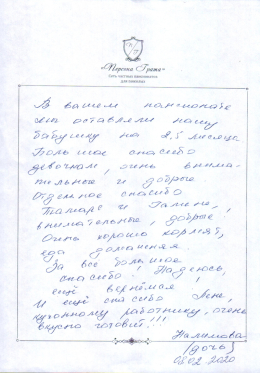 «Персона Грата»
Сеть частных пансионатов
для пожилых
В вашем пансионате
мы оставляли нашу
бабушку на 2,5 месяца
Большое спасибо
девочкам, очень внима-
тельные и добрые.
Отдельное спасибо
Тамаре и Галине,
внимательные, добрые!
Очень хорошо кормят,
еда домашняя.
За все большое
спасибо. Надеюсь,
ещё вернёмся!
И ещё спасибо Лене,
кухонному работнику, очень
вкусно готовит!!!
(дочь)
03.02.2020